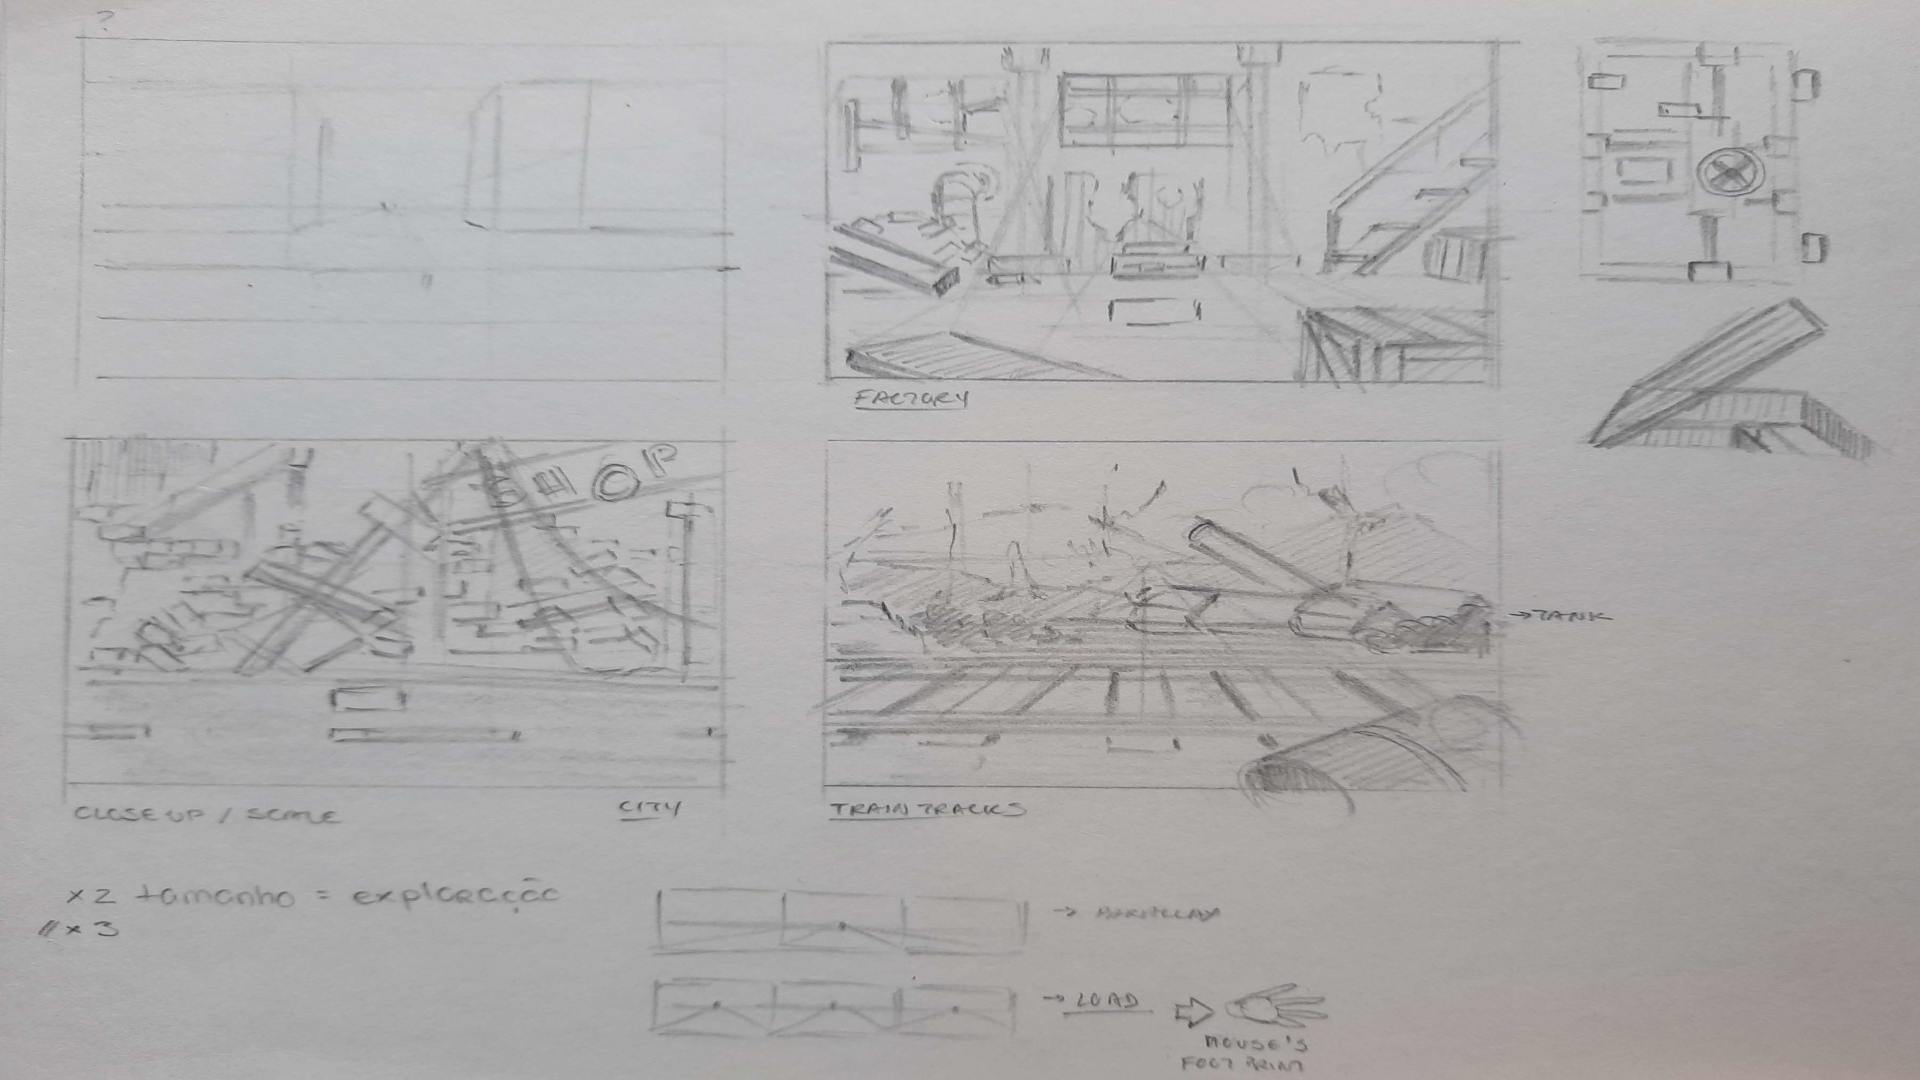 ?
FACTORY
SHOP
→TANK
CLOSE UP / SCALE
CITY
TRAIN TRACKS
x2 tamanho = exploracção
//x3
→ PARALLAX
→ LOAD
MOUSE'S
FOOT PRINT